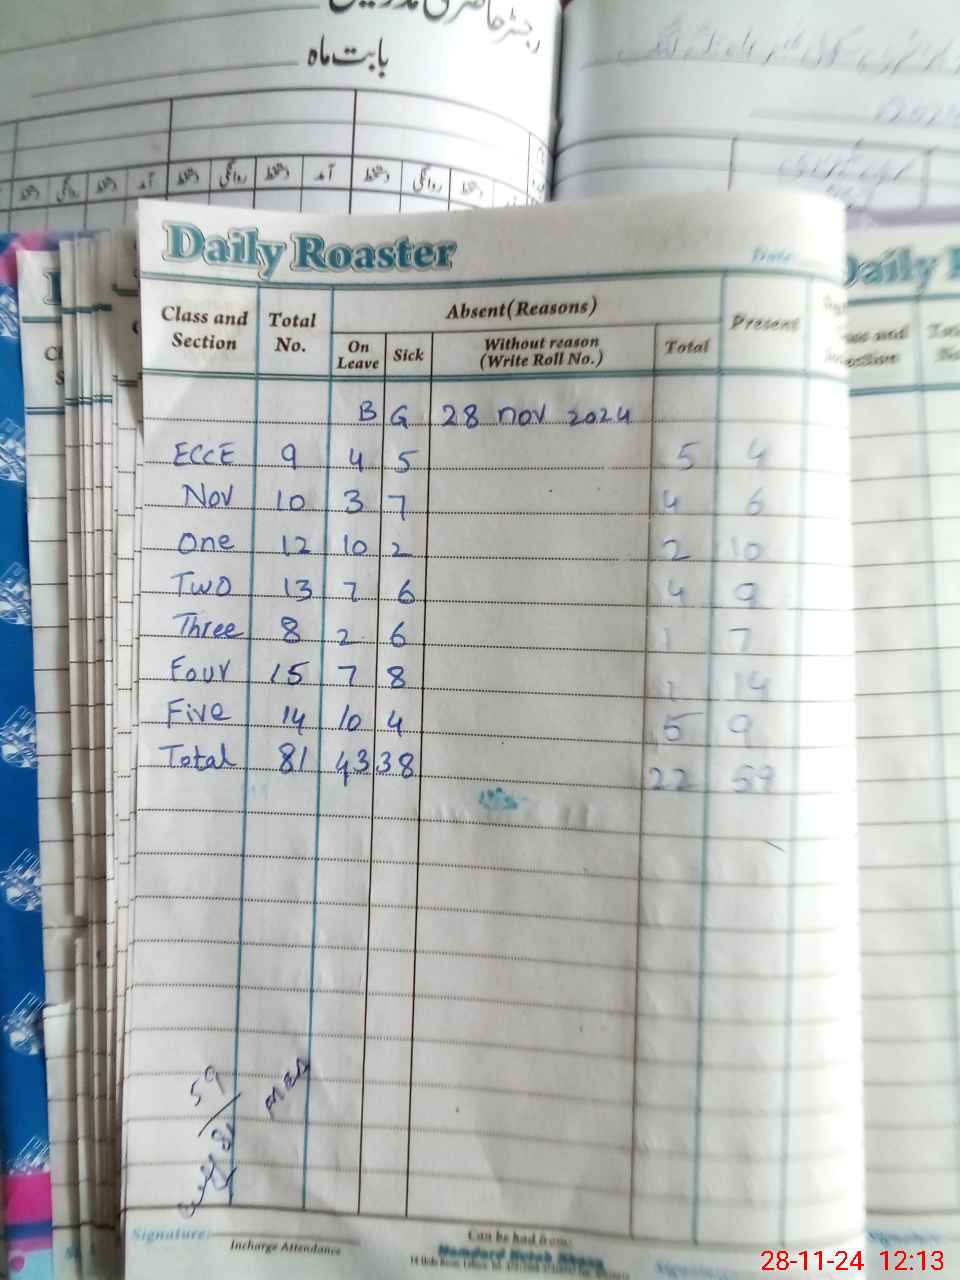 رجسٹر حاضری مدرسین
بابت ماہ
دستخط روانگی دستخط آمد دستخط روانگی دستخط آمد دستخط روانگی دستخط
Daily Roaster
Date:
Class and Section Total No. Absent(Reasons) Present
On Leave Sick Without reason (Write Roll No.) Total
B G 28 nov 2024
ECCE 9 4 5 5 4
Nov 10 3 7 4 6
One 12 10 2 2 10
Two 13 7 6 4 9
Three 8 2 6 1 7
Four 15 7 8 1 14
Five 14 10 4 5 9
Total 81 43 38 22 59
59
81
Signature:
Incharge Attendance
Can be had from:
Daily R
28-11-24 12:13